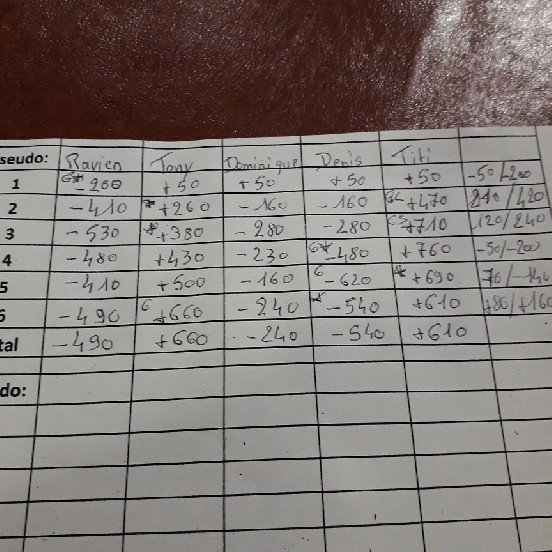 seudo: Ravien Tony Dominique Denis Titi
1 G* -200 +50 +50 +50 +50 -50/-200
2 -410 * +260 -160 -160 +470 210/420
3 -530 * +380 -280 -280 GS +710 120/240
4 -480 +430 -230 G* -480 +760 -50/-200
5 -410 +500 -160 G -620 * +690 70/-140
6 -490 G +660 -240 * -540 +610 +80/+160
tal -490 +660 -240 -540 +610
do: